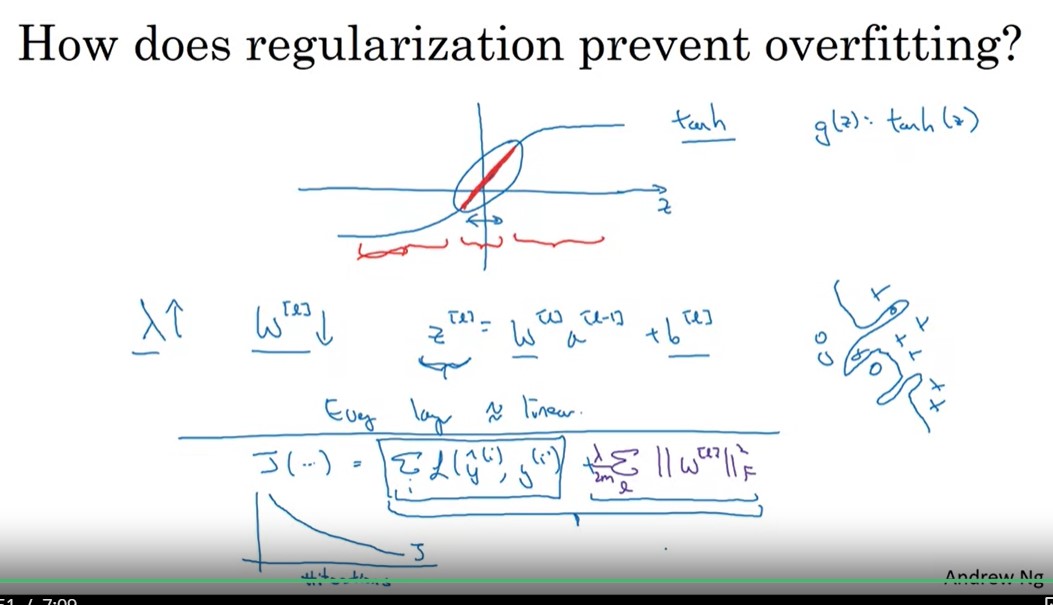 How does regularization prevent overfitting?
tanh
g(z) = tanh(z)
z
λ↑ W^[l]↓ z^[l] = W^[l] a^[l-1] + b^[l]
Every layer ≈ linear.
J(...) = Σ_i L(ŷ^(i), y^(i)) + λ/2m Σ_l ||W^[l]||²_F
J
# iterations
Andrew Ng
/ 7:09